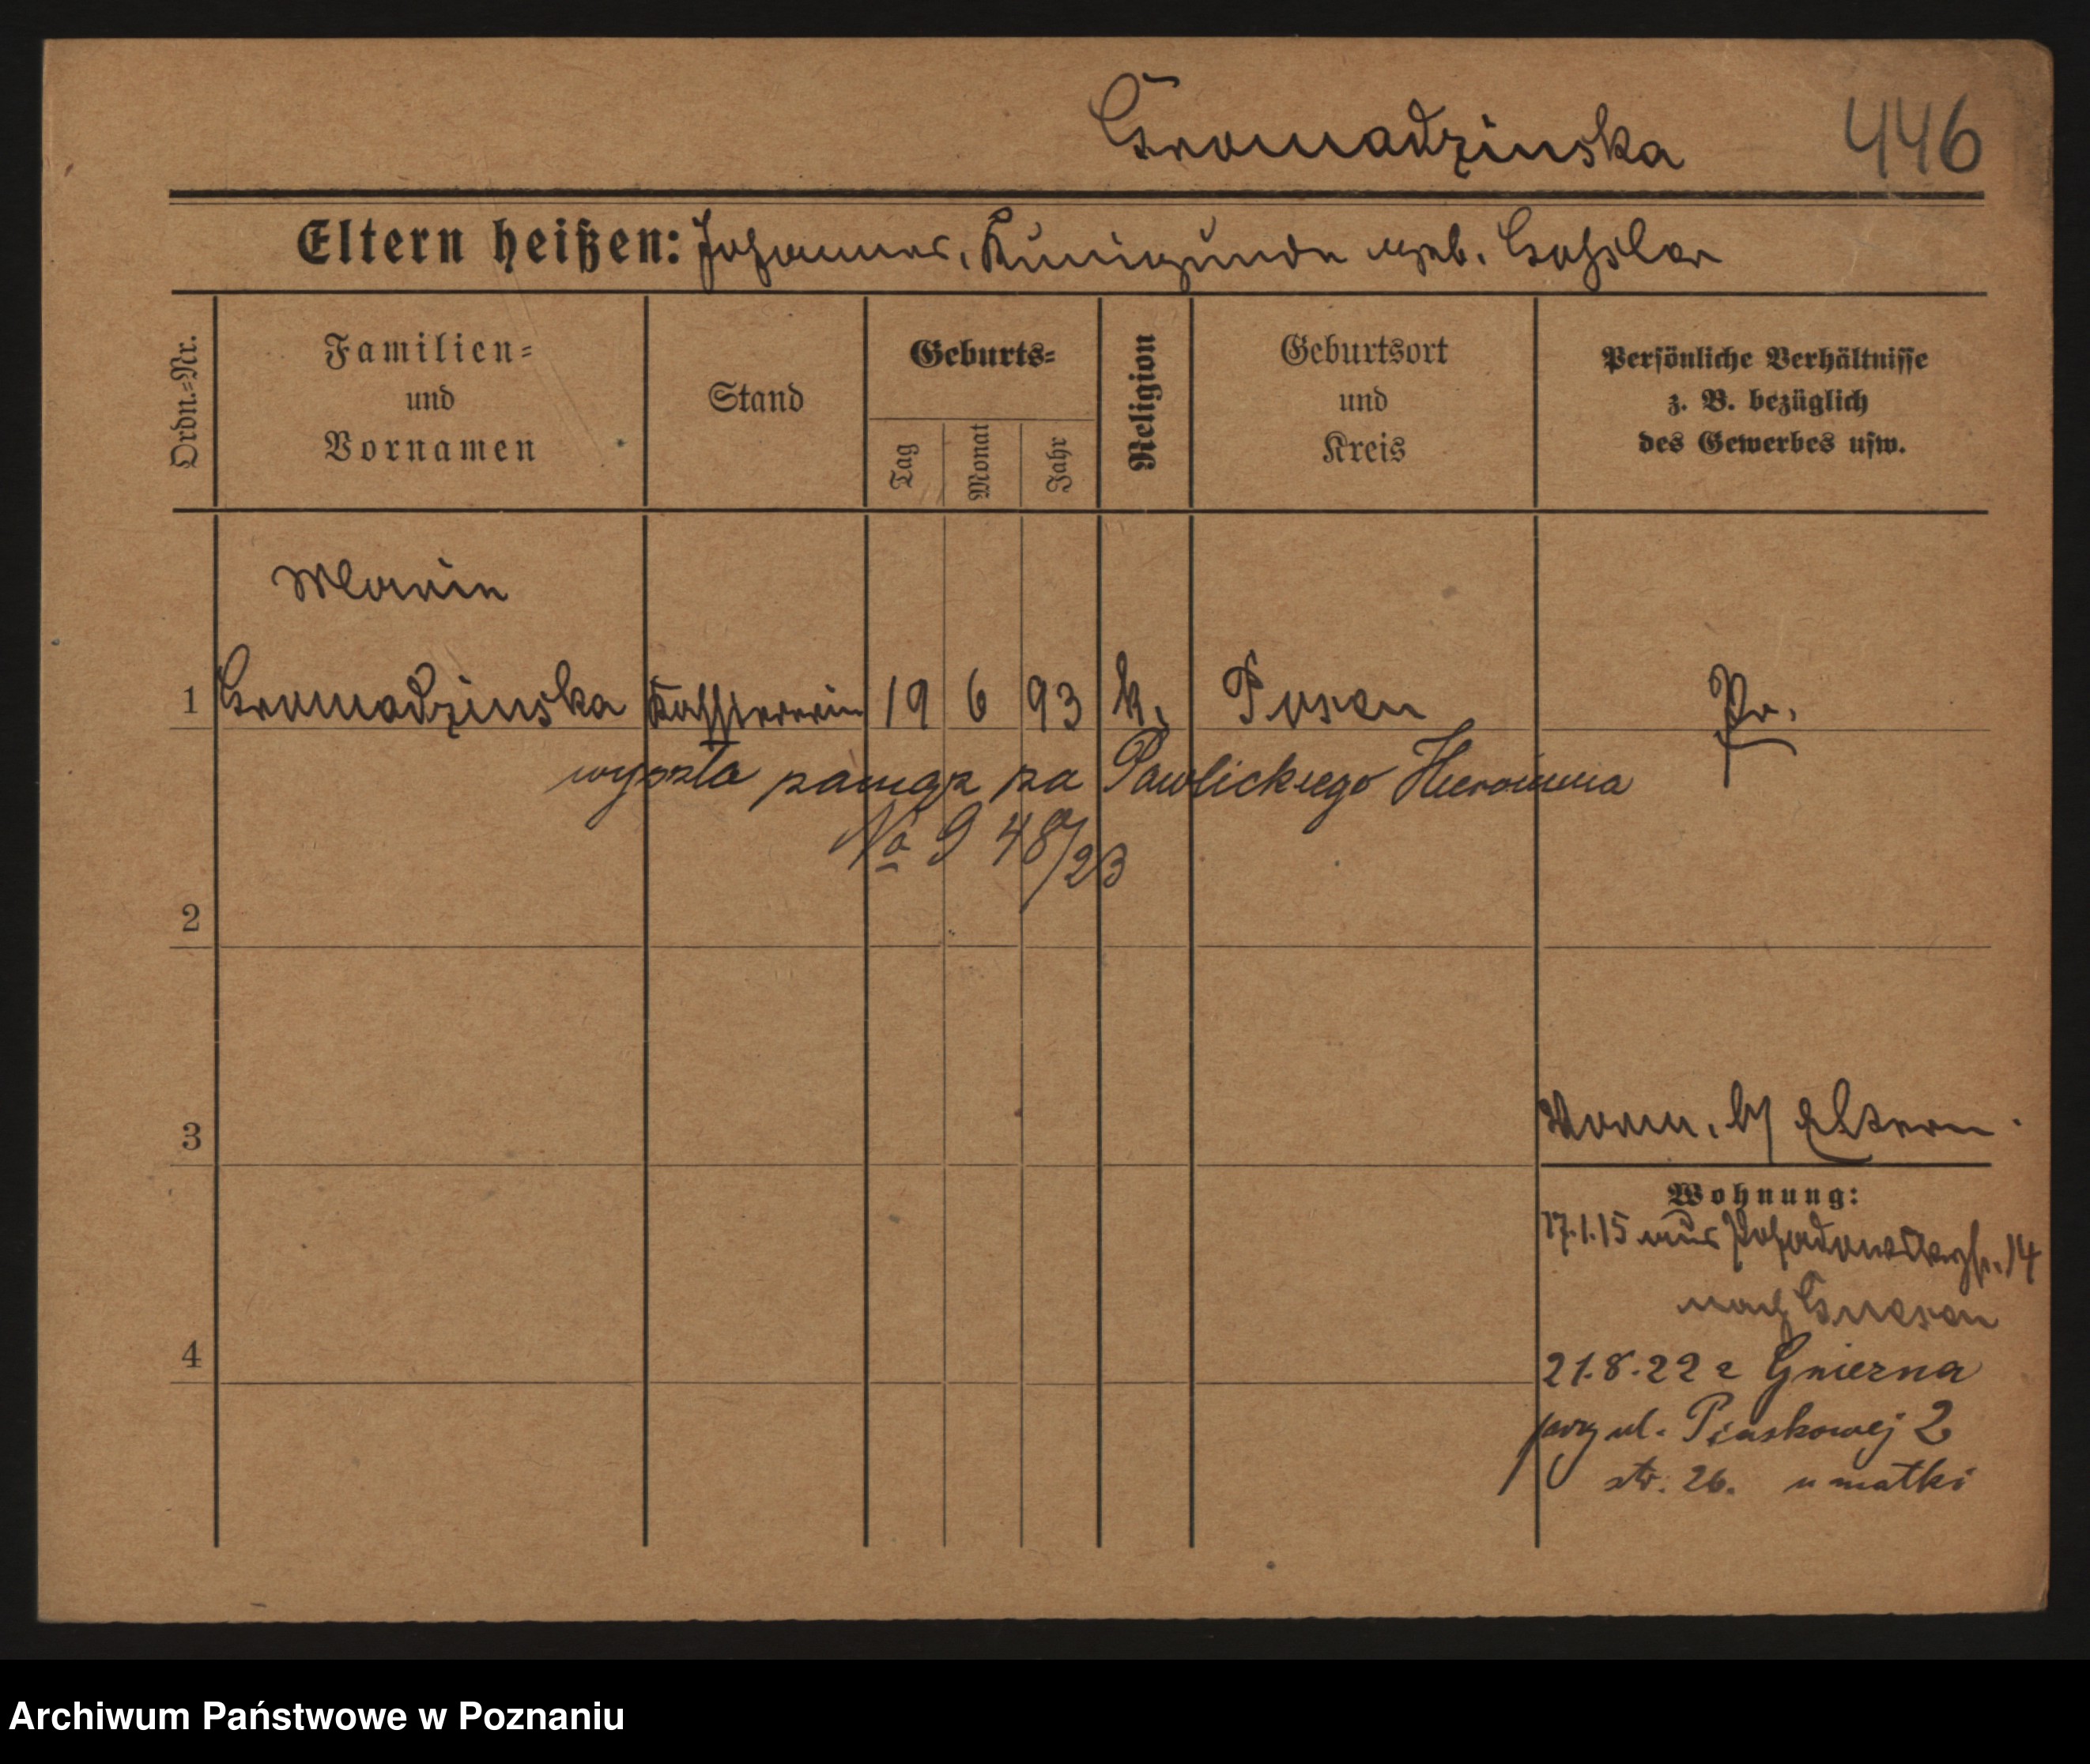 Gromadzinska 446
Eltern heißen: Johannes, Kunigunde geb. Gessler
Ordn.-Nr.
Familien-
und
Vornamen
Stand
Geburts-
Tag
Monat
Jahr
Religion
Geburtsort
und
Kreis
Persönliche Verhältnisse
z. B. bezüglich
des Gewerbes usw.
Maria
1 Gromadzinska Kassiererin 19 6 93 k. Posen Pr.
wyszła zamąz za Pawlickiego Hieronima
No 9 48/23
2
3
Wohn. b/ Eltern.
Wohnung:
17.1.15 aus 14
nach Gnesen
4
21.8.22 z Gniezna
przy ul. Piaskowej 2
str. 26. u matki
Archiwum Państwowe w Poznaniu